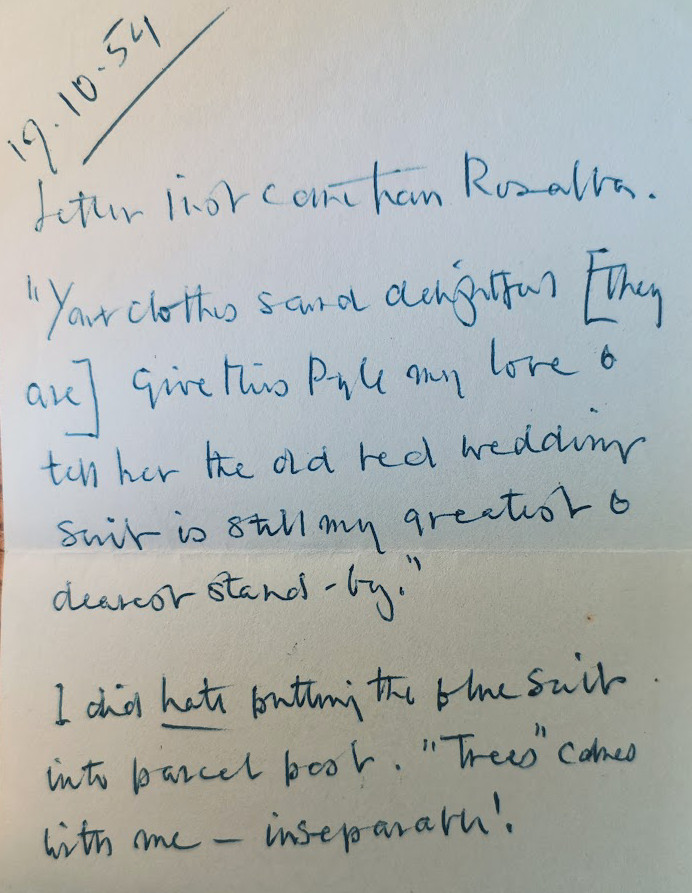 19.10.54
Letter just came from Rosalba.
"Your clothes sound delightful [They
are] Give Miss Pyle my love &
tell her the old red wedding
suit is still my greatest &
dearest stand-by."
I did hate putting the blue suit
into parcel post. "Trees" comes
with me – inseparable!